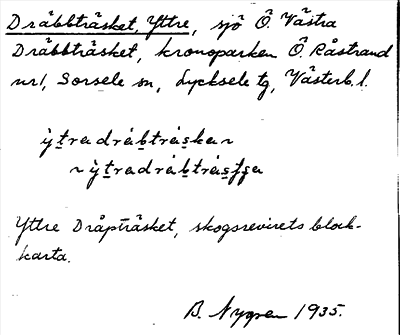 Dräbbträsket, Yttre, sjö Ö. Västra
Dräbbträsket, kronoparken Ö. Råstrand
nr 1, Sorsele sn, Lycksele tg, Västerb. l.
ỳtradrábtráskan
~ ỳtradrábtrásʃʃa
Yttre Dråpträsket, skogsrevirets block-
karta.
B. Nygren 1935.